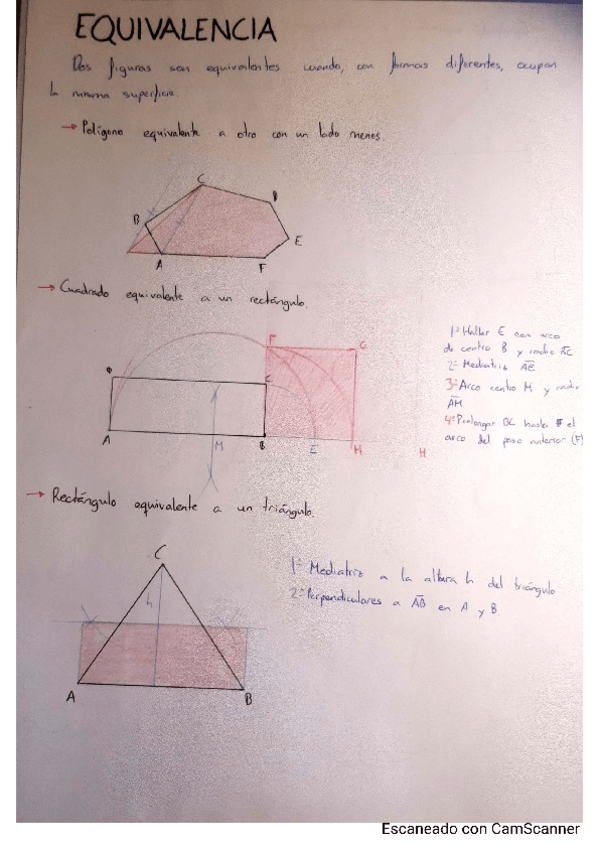 EQUIVALENCIA
Dos figuras son equivalentes cuando, con formas diferentes, ocupan
la misma superficie.
→ Polígono equivalente a otro con un lado menos.
C
B
D
E
A
F
→ Cuadrado equivalente a un rectángulo.
1º Hallar E con arco
de centro B y radio BC
2º Mediatriz AE
3º Arco centro M y radio
AM
4º Prolongar BC hasta el
arco del paso anterior (F)
F
G
D
C
A
M
B
E
H
H
→ Rectángulo equivalente a un triángulo.
1º Mediatriz a la altura h del triángulo
2º Perpendiculares a AB en A y B
C
h
A
B
Escaneado con CamScanner